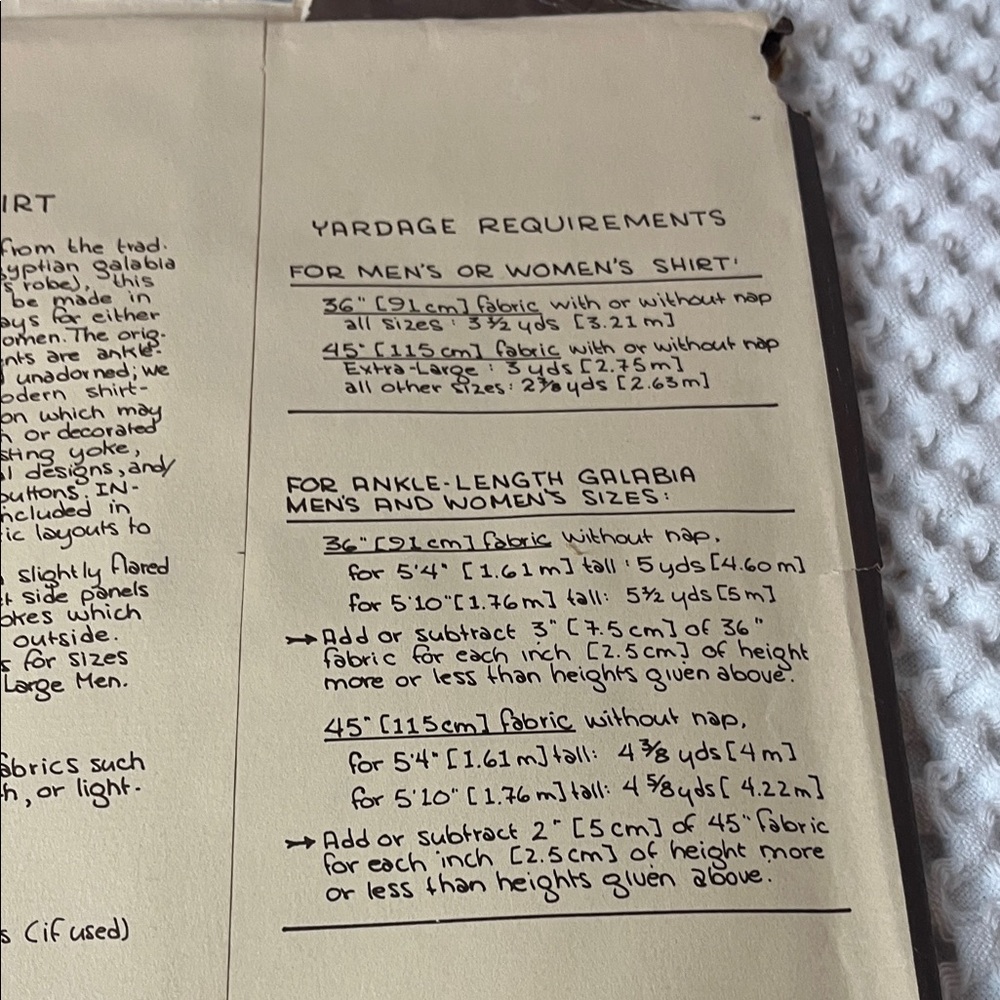 IRT
from the trad.
yptian galabia
s robe), this
be made in
ays for either
omen. The orig-
nts are ankle-
unadorned; we
odern shirt-
on which may
h or decorated
sting yoke,
l designs, and/
buttons. IN-
ncluded in
ic layouts to
slightly flared
t side panels
okes which
outside.
s for sizes
Large Men.
abrics such
h, or light-
s (if used)
YARDAGE REQUIREMENTS
FOR MEN'S OR WOMEN'S SHIRT:
36" [91cm] fabric with or without nap
all sizes: 3 1/2 yds [3.21m]
45" [115cm] fabric with or without nap
Extra-Large: 3 yds [2.75m]
all other sizes: 2 7/8 yds [2.63m]
FOR ANKLE-LENGTH GALABIA
MEN'S AND WOMEN'S SIZES:
36" [91cm] fabric without nap,
for 5'4" [1.61m] tall: 5 yds [4.60m]
for 5'10" [1.76m] tall: 5 1/2 yds [5m]
→ Add or subtract 3" [7.5cm] of 36"
fabric for each inch [2.5cm] of height
more or less than heights given above.
45" [115cm] fabric without nap,
for 5'4" [1.61m] tall: 4 3/8 yds [4m]
for 5'10" [1.76m] tall: 4 5/8 yds [4.22m]
→ Add or subtract 2" [5cm] of 45" fabric
for each inch [2.5cm] of height more
or less than heights given above.